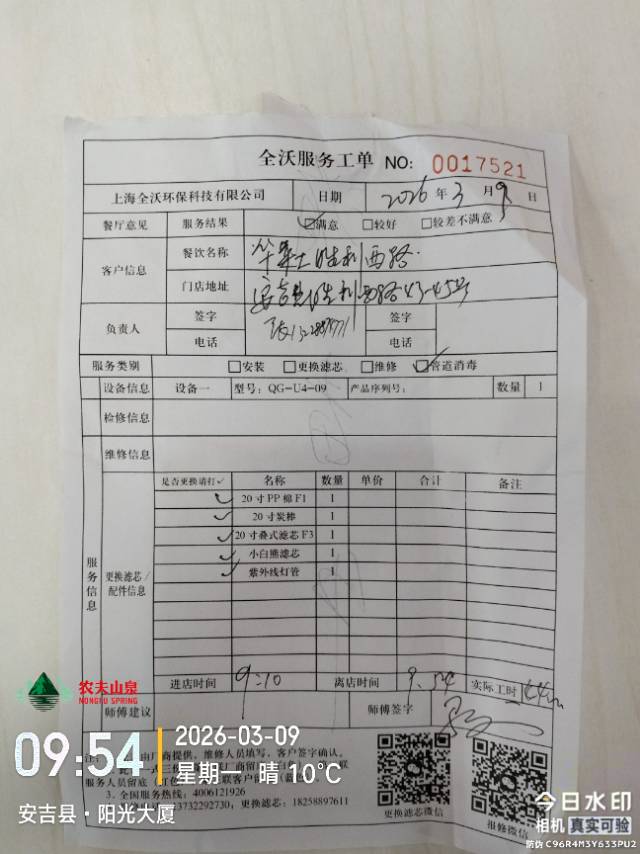 全沃服务工单 NO: 0017521
上海全沃环保科技有限公司 日期 2026年3月9日
餐厅意见 服务结果 ☑满意 □较好 □较差不满意
客户信息 餐饮名称 华莱士胜利西路
门店地址 安吉县胜利西路43-45号
负责人 签字 签字
电话 电话
服务类别 □安装 □更换滤芯 □维修 ☑管道消毒
设备信息 设备一 型号: QG-U4-09 产品序列号: 数量 1
检修信息
维修信息
服务信息 更换滤芯/配件信息
是否更换请打✓ 名称 数量 单价 合计 备注
✓ 20寸PP棉F1 1
✓ 20寸炭棒 1
✓ 20寸叠式滤芯F3 1
✓ 小白熊滤芯 1
✓ 紫外线灯管 1
进店时间 9:10 离店时间 9:54 实际工时 44m
师傅建议 师傅签字
由厂商提供。维修人员填写、客户签字确认。
3. 全国服务热线: 4006121926
23732292730, 更换滤芯: 18258897611
更换滤芯微信
报修微信
农夫山泉
NONGFU SPRING
09:54
2026-03-09
星期一 晴 10℃
安吉县·阳光大厦
今日水印
相机 真实可验
防伪 C96R4M3Y633PU2